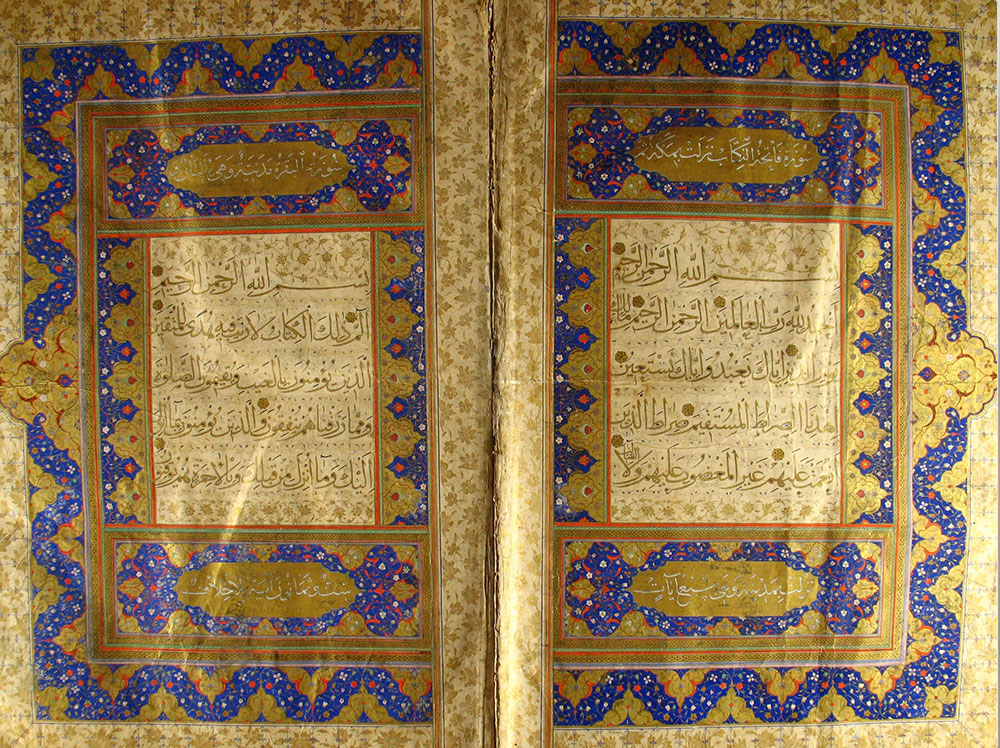 سورة فاتحة الكتاب نزلت بمكة
بسم الله الرحمن الرحيم
الحمد لله رب العالمين الرحمن الرحيم مالك
يوم الدين اياك نعبد واياك نستعين
اهدنا الصراط المستقيم صراط الذين
انعمت عليهم غير المغضوب عليهم ولا الضالين
سبع آيات
سورة البقرة مدنية وهي مائتان
بسم الله الرحمن الرحيم
الم ذلك الكتاب لا ريب فيه هدى للمتقين
الذين يؤمنون بالغيب ويقيمون الصلوة
ومما رزقناهم ينفقون والذين يؤمنون بما انزل
اليك وما انزل من قبلك وبالاخرة هم يوقنون
ست وثمانون آية بلا خلاف